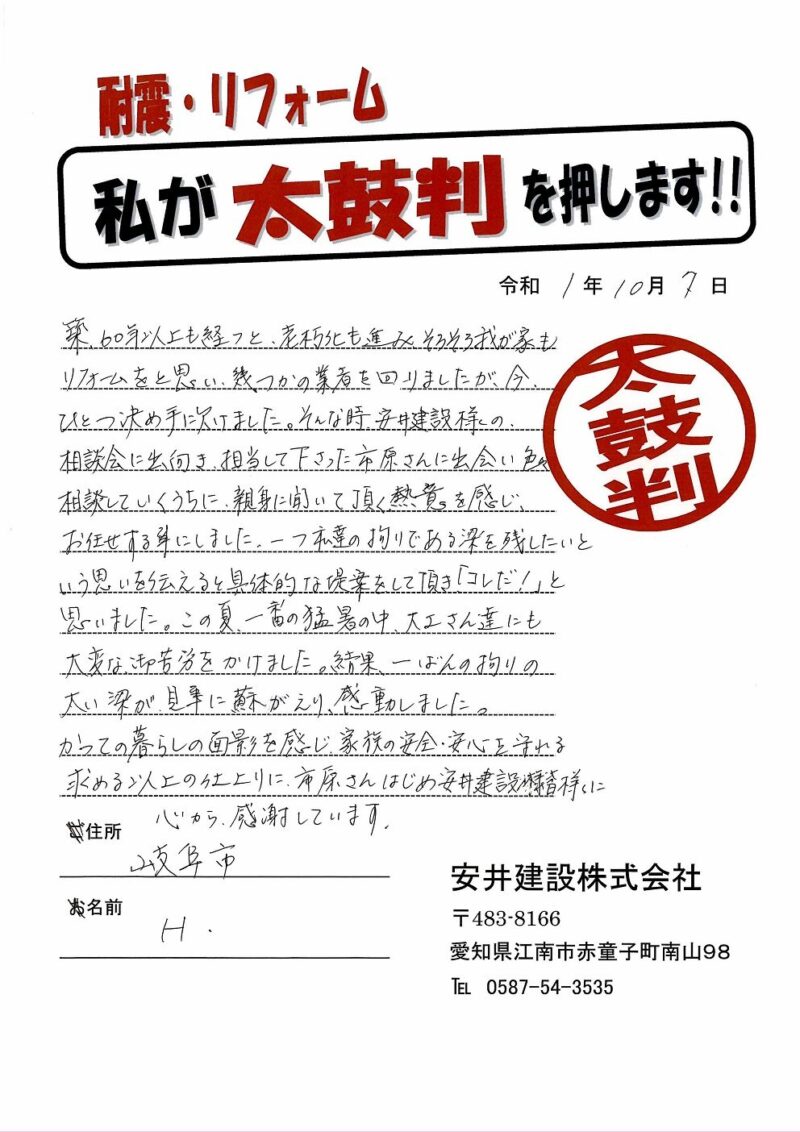 耐震・リフォーム
私が太鼓判を押します!!
令和 1年 10月 7日
築、60年以上も経つと、老朽化も進み、そろそろ我が家も
リフォームをと思い、幾つかの業者を回りましたが、今、
ひとつ決め手に欠けました。そんな時、安井建設様の、
相談会に出向き、担当して下さった市原さんに出会い色々
相談していくうちに、親身に聞いて頂く熱意を感じ、
お任せする事にしました。一つ私達の拘りである梁を残したいと
いう思いを伝えると具体的な提案をして頂き「コレだ!」と
思いました。この夏、一番の猛暑の中、大工さん達にも
大変な御苦労をかけました。結果、一ばんの拘りの
太い梁が、見事に蘇がえり、感動しました。
かつての暮らしの面影を感じ、家族の安全・安心を守れる
求める以上の仕上りに、市原さんはじめ安井建設の皆様に
心から、感謝しています。
太鼓判
住所
岐阜市
お名前
H.
安井建設株式会社
〒483-8166
愛知県江南市赤童子町南山98
℡ 0587-54-3535